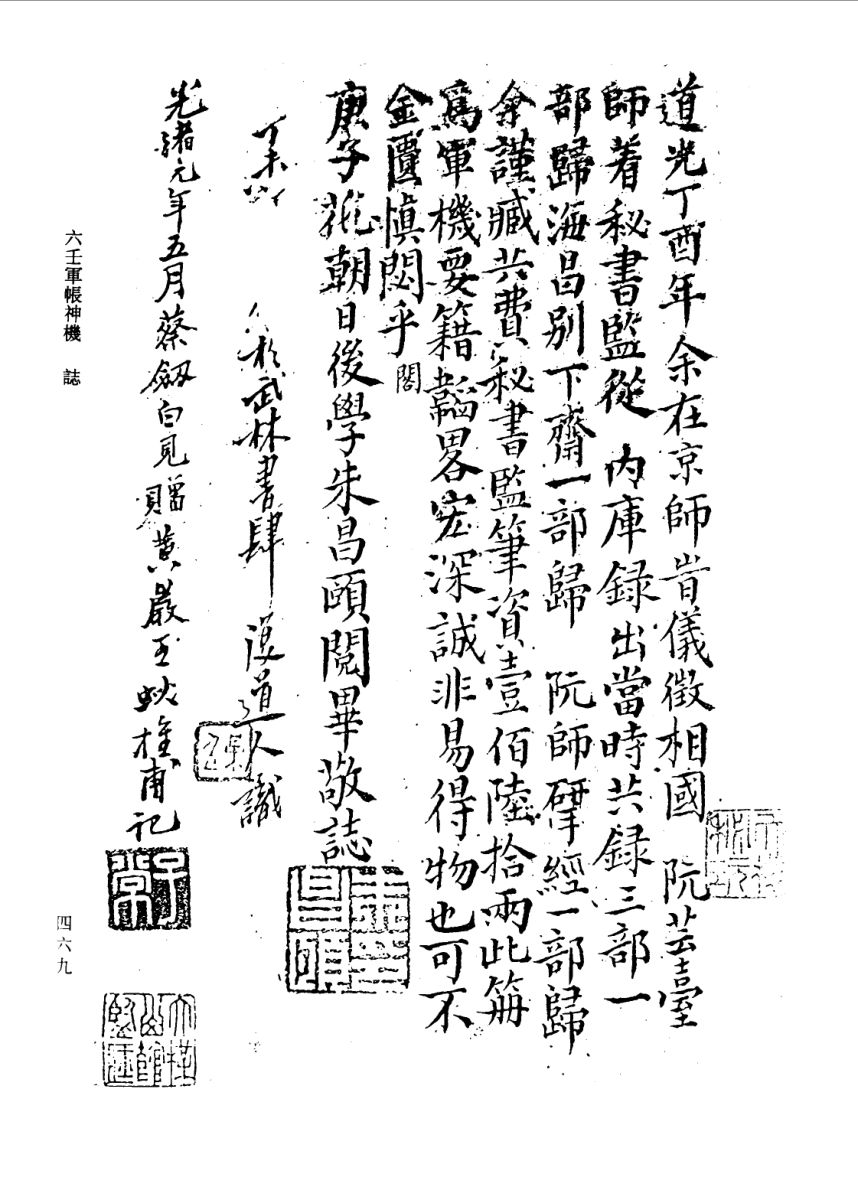 道光丁酉年余在京師旹儀徵相國 阮芸臺
師着秘書監從 內庫録出當時共録三部一
部歸海昌別下齋一部歸 阮師揅經一部歸
余謹藏共費秘書監筆資壹佰陸拾兩此册
爲軍機要籍韜畧宏深誠非易得物也可不
金匱慎閟乎
閣
庚子花朝日後學朱昌頤閱畢敬誌
丁未 於武林書肆 道人識
光緒元年五月蔡劔白見贈黃巖王 甫記
六壬軍帳神機 誌
四六九
朱昌頤
子常